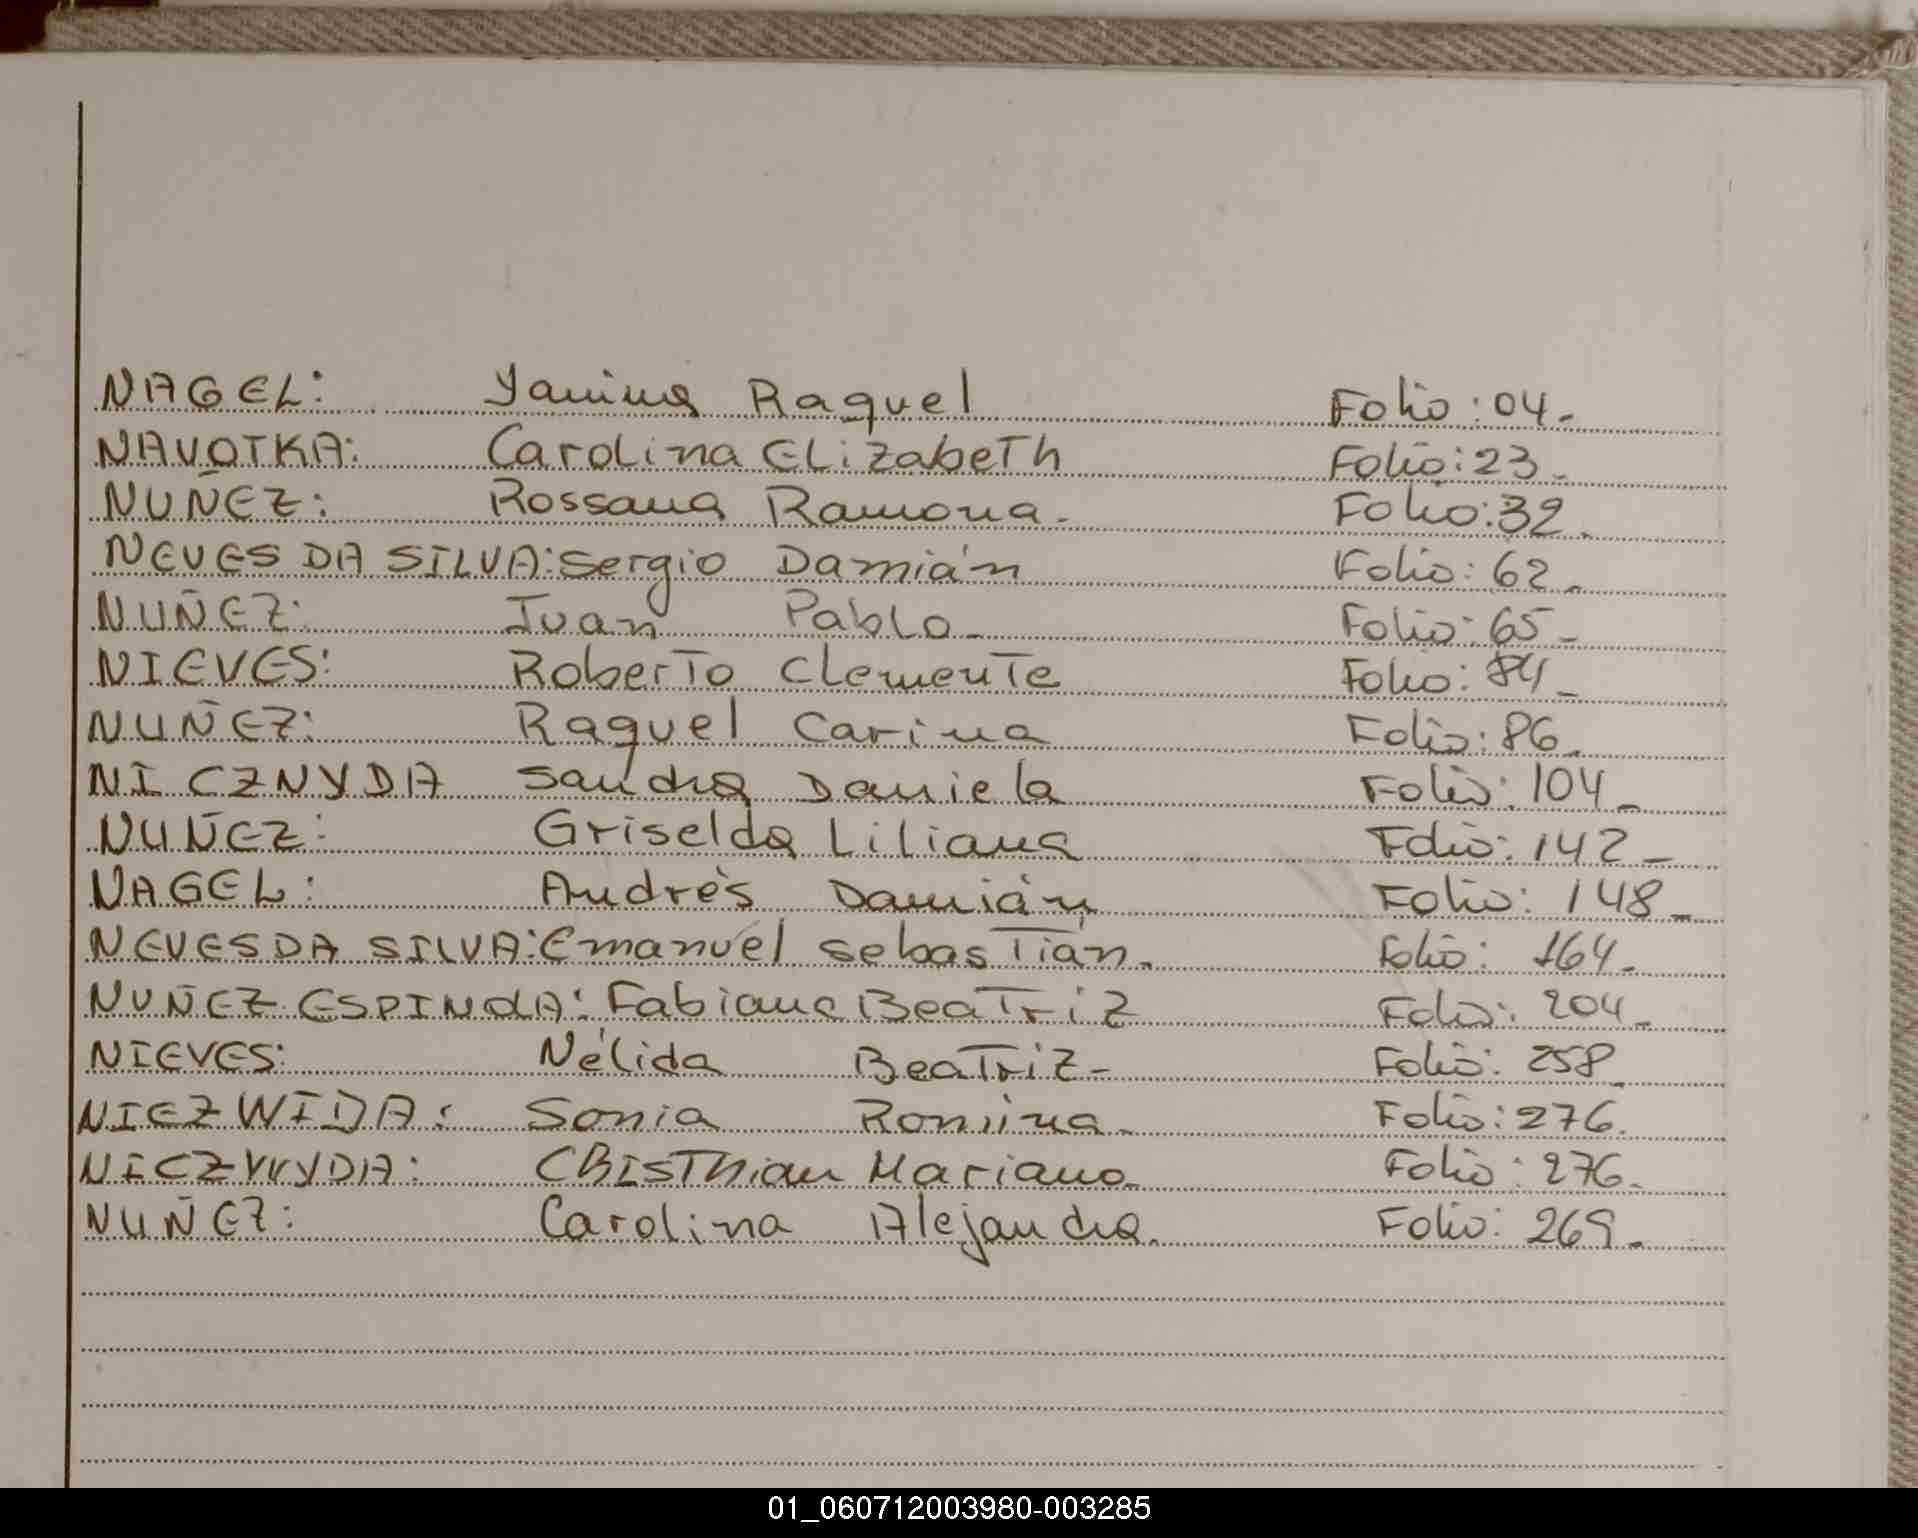 NAGEL: Yanina Raquel Folio: 04.
NAVOTKA: Carolina Elizabeth Folio: 23.
NUÑEZ: Rossana Ramona. Folio: 32.
NEVES DA SILVA: Sergio Damián Folio: 62.
NUÑEZ: Juan Pablo. Folio: 65.
NIEVES: Roberto Clemente Folio: 84.
NUÑEZ: Raquel Carina Folio: 86.
NICZNYDA Sandra Daniela Folio: 104.
NUÑEZ: Griselda Liliana Folio: 142.
NAGEL: Andrés Damián Folio: 148.
NEVES DA SILVA: Emanuel Sebastián. Folio: 164.
NUÑEZ ESPINDOLA: Fabiana Beatriz Folio: 204.
NIEVES: Nélida Beatriz. Folio: 258.
NIEZWIDA: Sonia Romina. Folio: 276.
Mariano. Folio: 276.
NUÑEZ: Carolina Alejandra. Folio: 269.
01_060712003980-003285